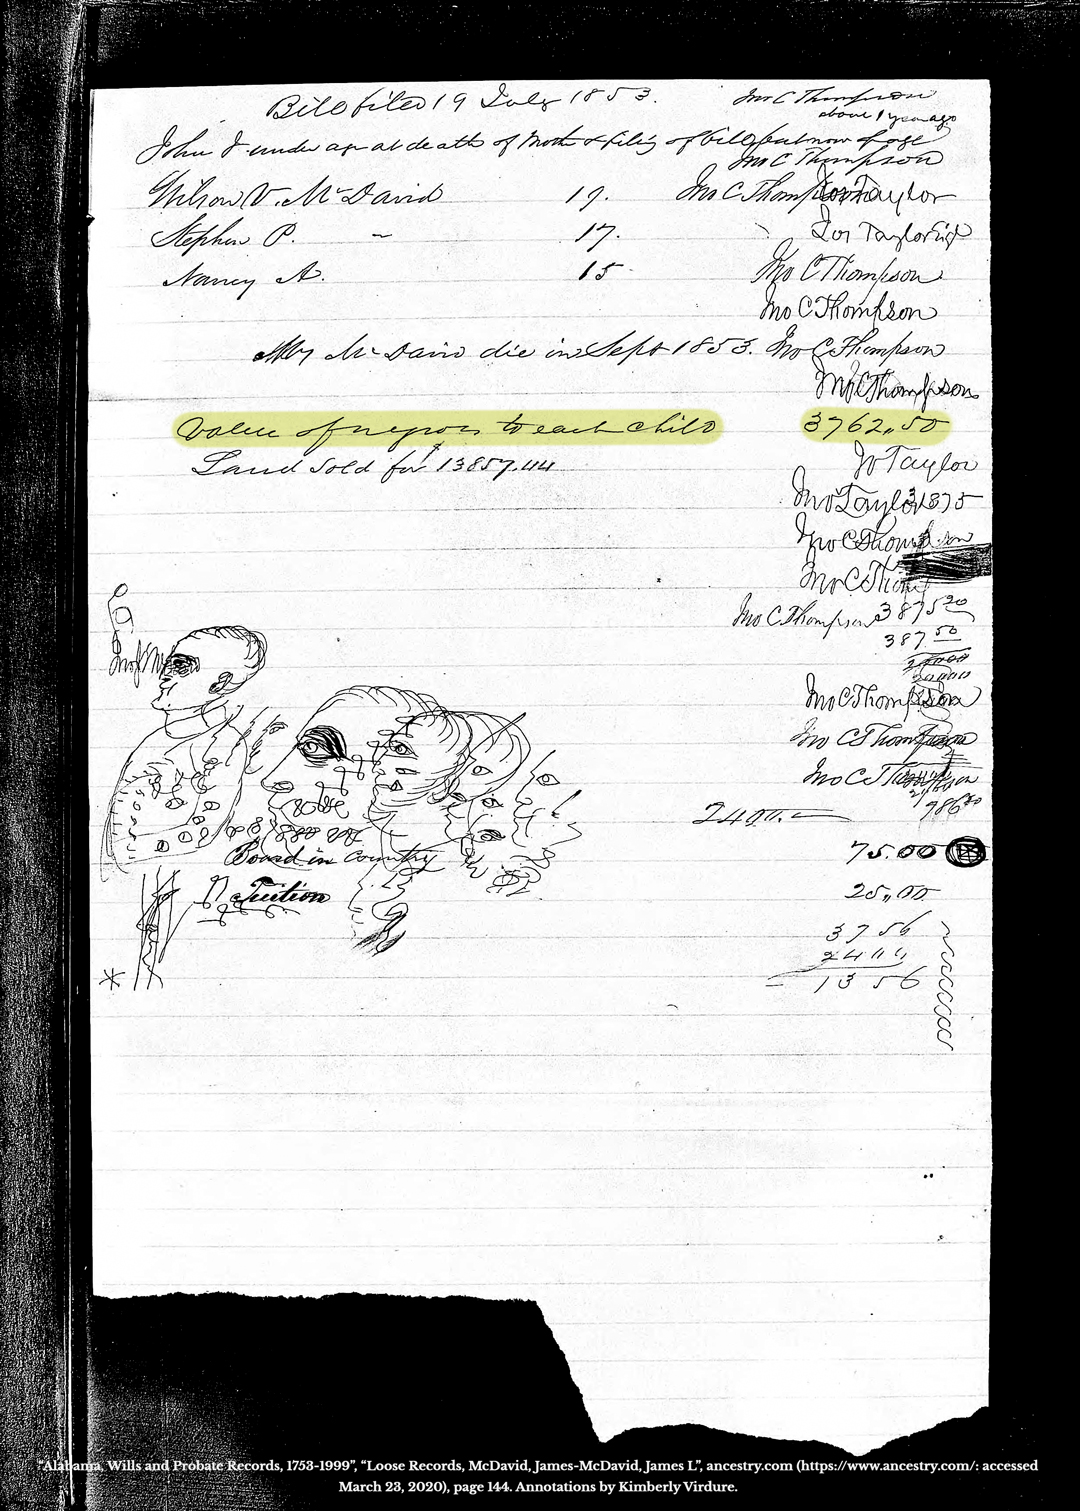 Bill filed 19 July 1853.
Jno C Thompson
about 1 year ago
John J. under age at death of Moth & filig of bill but now of age
Jno C Thompson
Wilson V. McDavid 19. Jno C Thompson Jos Taylor
Stephen P. " 17. Jos Taylor
Nancy A. 15 Jno C Thompson
Jno C Thompson
McDavid die in Sept 1853. Jno C Thompson
Jno C Thompson
Value of negroes to each child 3762,,50
Land sold for $13857.44
Jo Taylor
Jno Taylor 3875
Jno C Thompson
Jno C Thom
Jno C Thompson 3875
387 50
Jno C Thompson
Jno C Thompson
Jno C Thompson
2400.
986
Board in country 75.00
Tuition 25,,00
3756
2400
1356
"Alabama, Wills and Probate Records, 1753-1999", "Loose Records, McDavid, James-McDavid, James L", ancestry.com (https://www.ancestry.com/: accessed
March 23, 2020), page 144. Annotations by Kimberly Virdure.